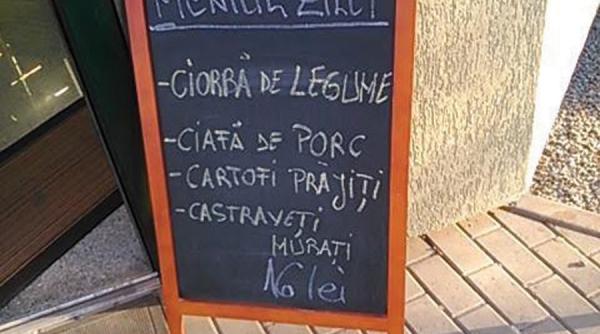 MENIUL ZILEI
-CIORBĂ DE LEGUME
-CIAFĂ DE PORC
-CARTOFI PRĂJIȚI
-CASTRAVEȚI
MURAȚI
lei